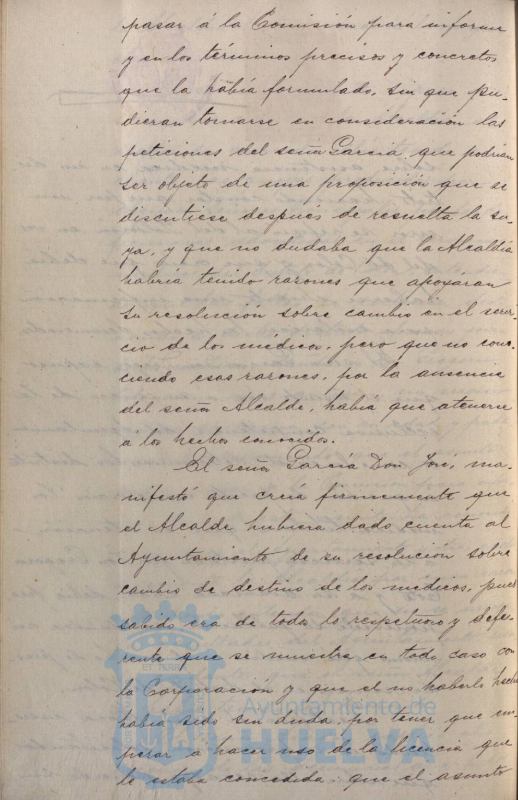 pasar á la Comisión para informe
y en los términos precisos y concretos
que la había formulado, sin que pu-
dieran tomarse en consideración las
peticiones del señor García, que podrían
ser objeto de una proposición que se
discutiese después de resuelta la su-
ya, y que no dudaba que la Alcaldía
habría tenido razones que apoyáran
su resolución sobre cambio en el servi-
cio de los médicos, pero que no cono-
ciendo esas razones, por la ausencia
del señor Alcalde, había que atenerse
á los hechos conocidos.
El señor García Don José, ma-
nifestó que creía firmemente que
el Alcalde hubiera dado cuenta al
Ayuntamiento de su resolución sobre
cambio de destino de los médicos, pues
sabido era de todos lo respetuoso y defe-
rente que se muestra en todo caso con
la Corporación y que el no haberlo hecho
había sido sin duda, por tener que em-
pezar a hacer uso de la licencia que
le estaba concedida: que el asunto
Ayuntamiento de
HUELVA